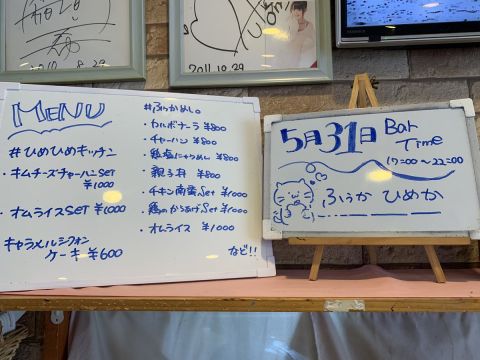 2010.8.29
2011.10.29
MENU
#ひめひめキッチン
・キムチーズチャーハンSET
¥1000
・オムライスSET ¥1000
キャラメルシフォン
ケーキ ¥600
#ふぅかめし。
・カルボナーラ ¥800
・チャーハン ¥800
・鶏塩にゅうめん ¥800
・親子丼 ¥800
・チキン南蛮Set ¥1000
・鶏のからあげSet ¥1000
・オムライス ¥1000
など!!
5月31日 Bar
Time
17:00〜22:00
ふぅか ひめか